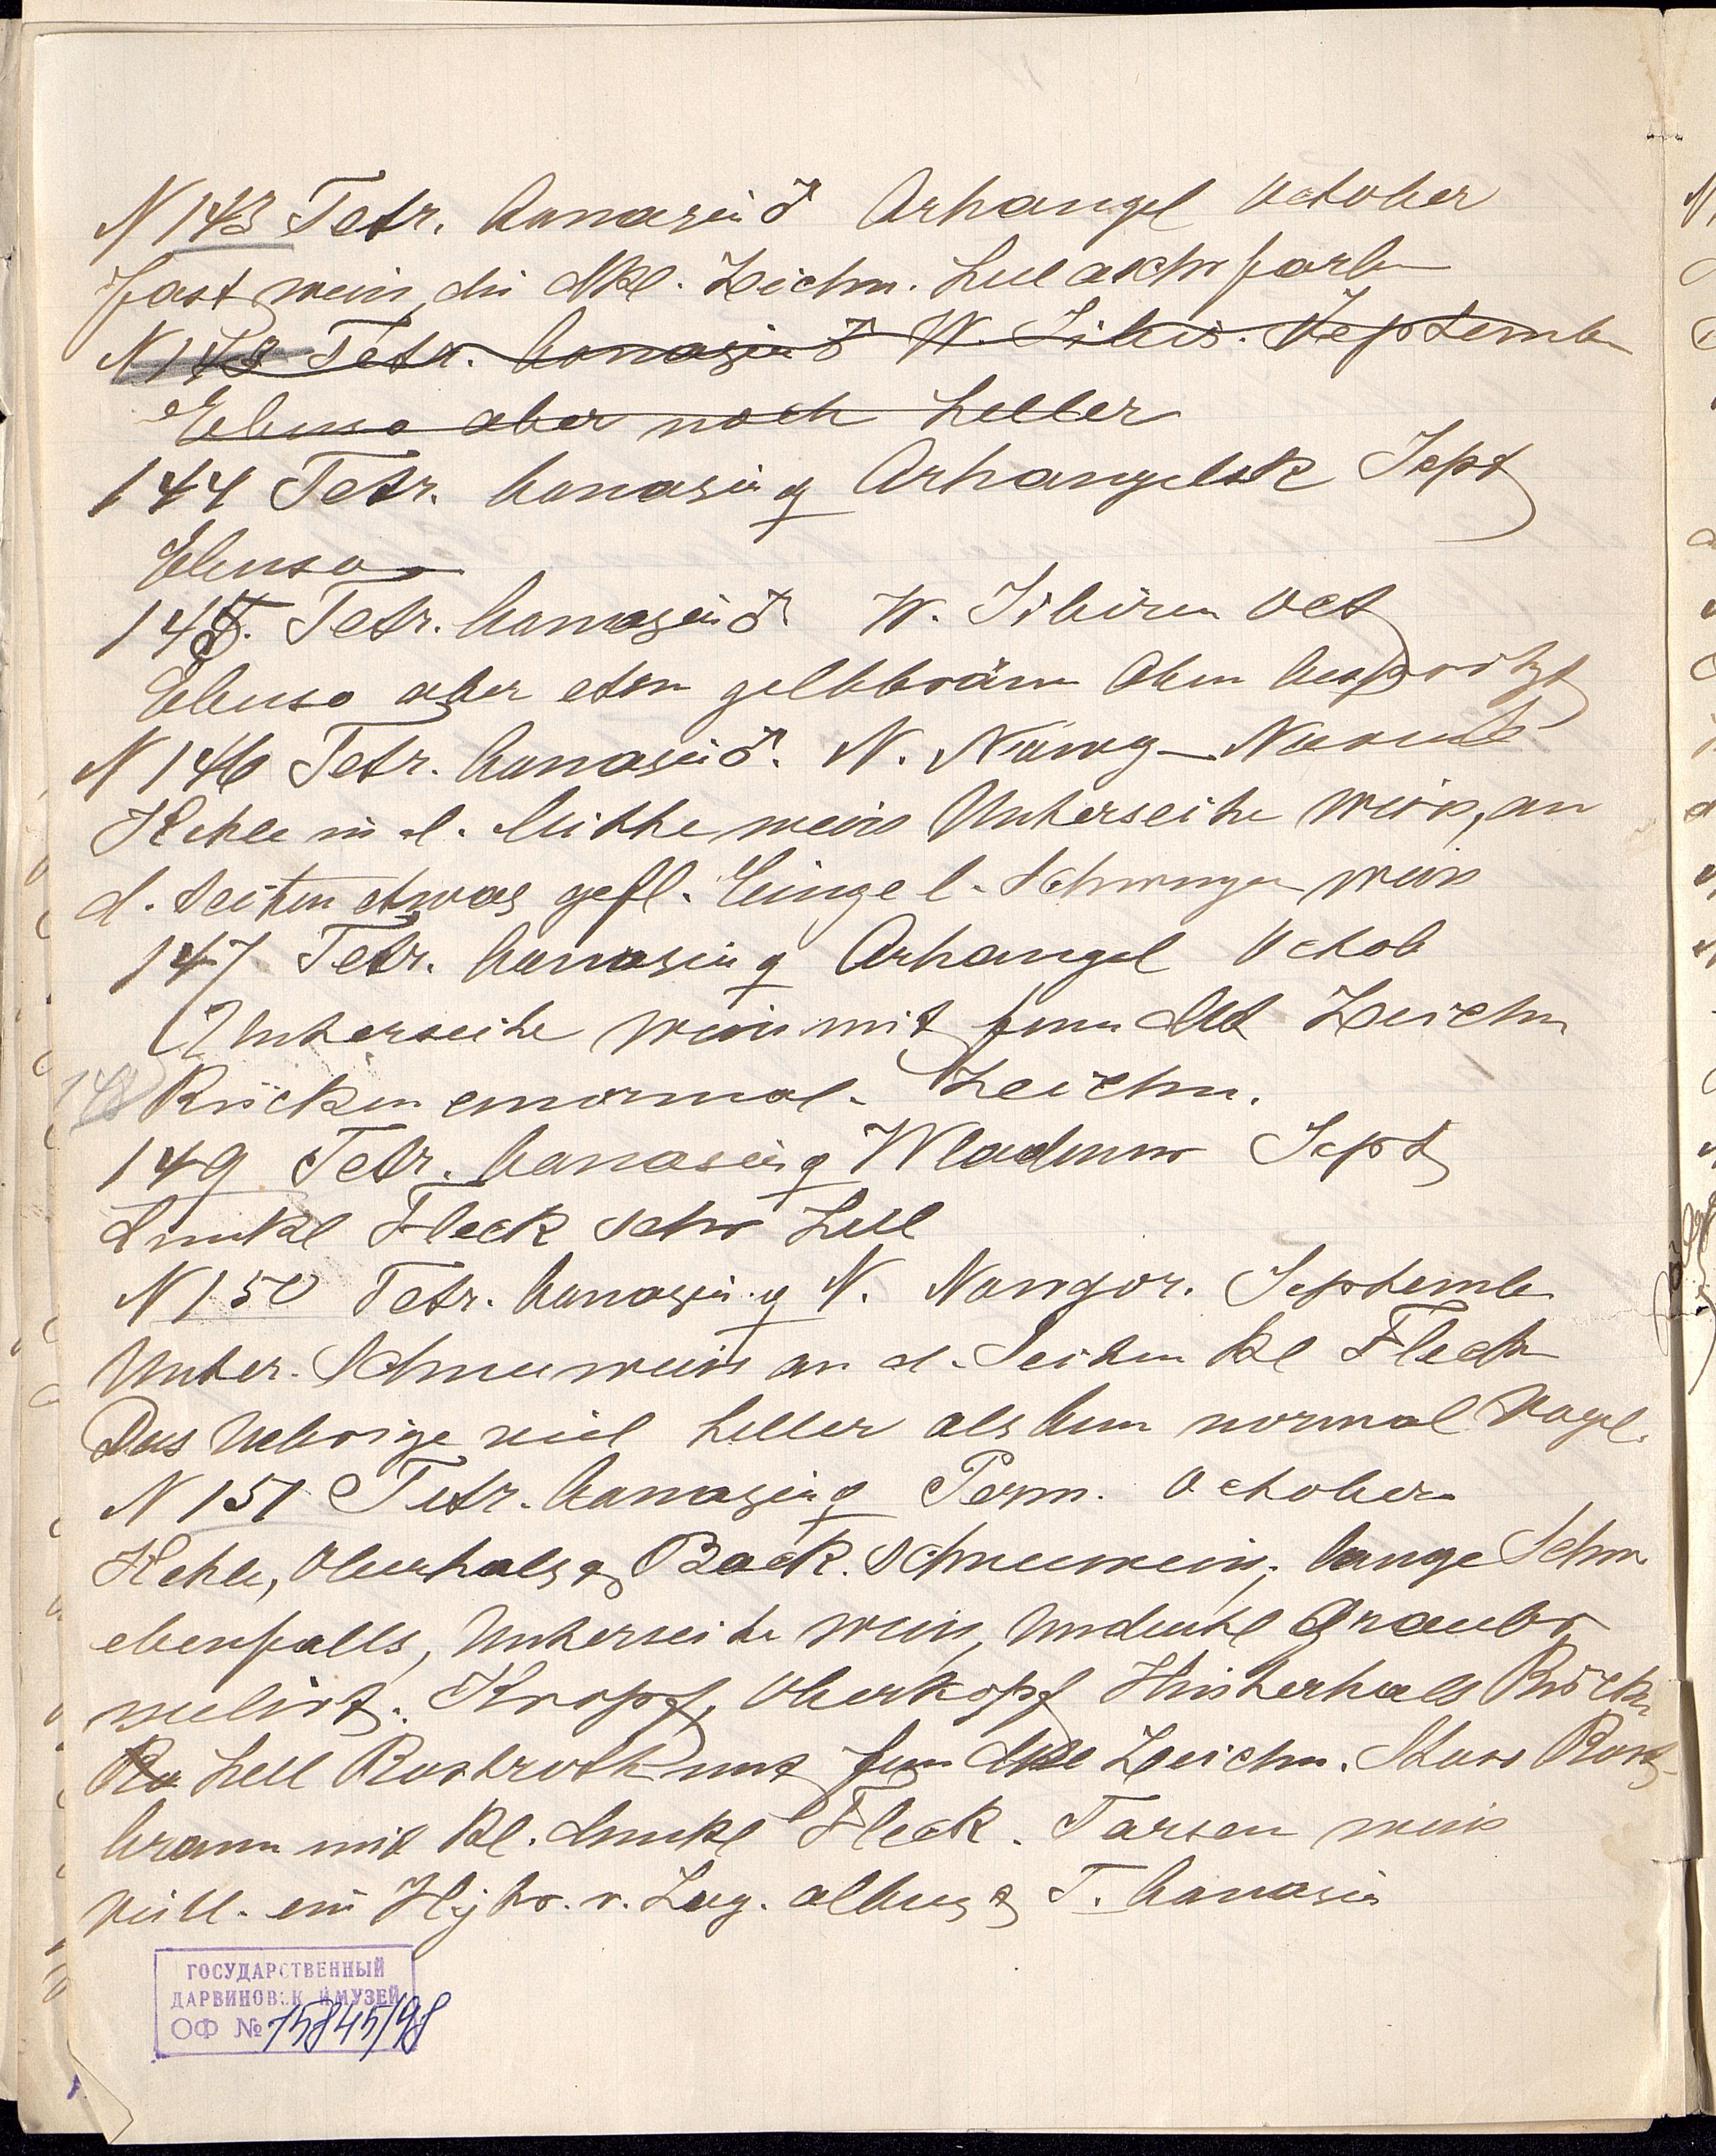 N 143 Tetr. bonasia ♂ Arhangel October
fast weiss, die dkl. Zeichn. hell aschfarben
N 148 Tetr. bonasia ♂ W. Sibir. Septemb
Ebenso aber noch heller
144 Tetr. bonasia ♀ Arhangelsk Sept
Ebenso
145. Tetr. bonasia ♂ W. Sibirien Oct
Ebenso aber etw gelbbräun Oben bespritzt
N 146 Tetr. bonasia ♂. N. Nowg
Kehle in d. Mitte weiss Unterseite weiss, an
d. Seiten etwas gefl. Einzel. Schwingen weiss
147 Tetr. bonasia ♀ Arhangel Octob
Unterseite weiss mit Zeichn
148 Rücken normal. Zeichn.
149 Tetr. bonasia ♀ Wladimir Sept
Dunkl Fleck sehr hell
N 150 Tetr. bonasia ♀ N. Nowgor. Septemb
Unter. Schneeweiss an d. Seiten kl Fleck
Das Uebrige viel heller als beim normal Vogel.
N 151 Tetr. bonasia ♀ Perm. October
Kehle, Oberhals & Back. schneeweiss, lange Schw
ebenfalls, Unterseite weiss, undeutl Graubr
melirt. Kropf, Oberkopf Hinterhals Rücken
Ro hell Rostroth mit Zeichn. Stoss Rost-
braun mit kl. dunkl Fleck. Tarsen weiss
viell. ein Hybr. v. Lag. albus & T. bonasia
ГОСУДАРСТВЕННЫЙ
ДАРВИНОВСК ИЙ МУЗЕЙ
ОФ № 15845/98